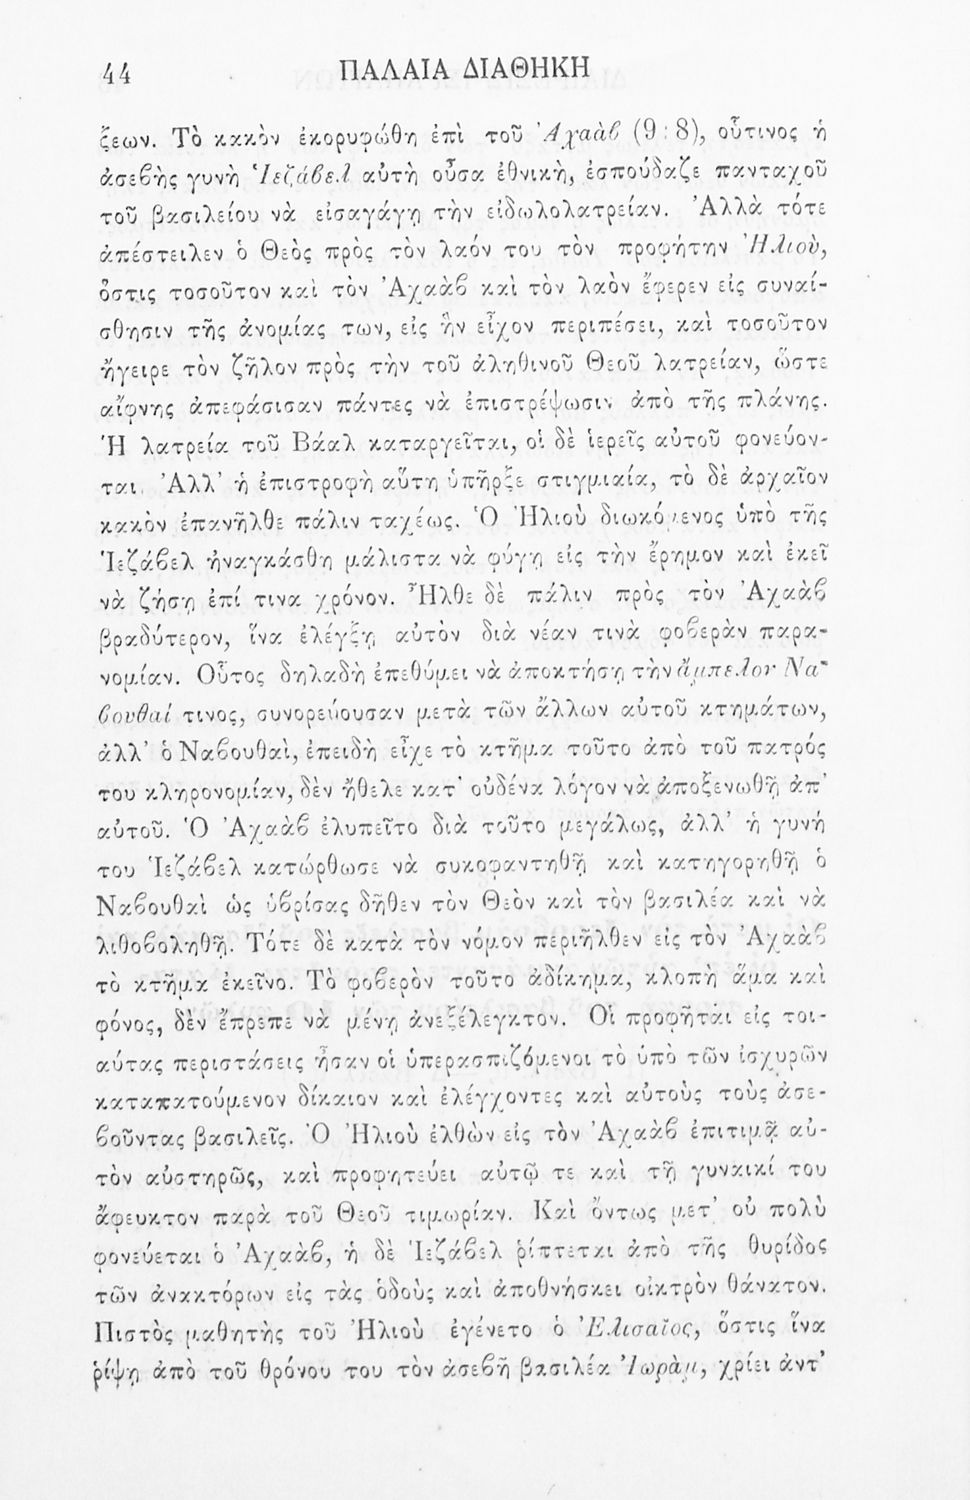 44 ΠΑΛΑΙΑ ΔΙΑΘΗΚΗ
ξεων. Τὸ κακὸν ἐκορυφώθη ἐπὶ τοῦ Ἀχαὰβ (9 : 8), οὗτινος ἡ
ἀσεβὴς γυνὴ Ἰεζάβελ αὐτὴ οὖσα ἐθνικὴ, ἐσπούδαζε πανταχοῦ
τοῦ βασιλείου νὰ εἰσαγάγῃ τὴν εἰδωλολατρείαν. Ἀλλὰ τότε
ἀπέστειλεν ὁ Θεὸς πρὸς τὸν λαόν του τὸν προφήτην Ἠλιοὺ,
ὅστις τοσοῦτον καὶ τὸν Ἀχαὰβ καὶ τὸν λαὸν ἔφερεν εἰς συναί-
σθησιν τῆς ἀνομίας των, εἰς ἣν εἶχον περιπέσει, καὶ τοσοῦτον
ἤγειρε τὸν ζῆλον πρὸς τὴν τοῦ ἀληθινοῦ Θεοῦ λατρείαν, ὥστε
αἴφνης ἀπεφάσισαν πάντες νὰ ἐπιστρέψωσιν ἀπὸ τῆς πλάνης.
Ἡ λατρεία τοῦ Βάαλ καταργεῖται, οἱ δὲ ἱερεῖς αὐτοῦ φονεύον-
ται. Ἀλλ' ἡ ἐπιστροφὴ αὕτη ὑπῆρξε στιγμιαία, τὸ δὲ ἀρχαῖον
κακὸν ἐπανῆλθε πάλιν ταχέως. Ὁ Ἠλιοὺ διωκόμενος ὑπὸ τῆς
Ἰεζάβελ ἠναγκάσθη μάλιστα νὰ φύγῃ εἰς τὴν ἔρημον καὶ ἐκεῖ
νὰ ζήσῃ ἐπί τινα χρόνον. Ἦλθε δὲ πάλιν πρὸς τὸν Ἀχαὰβ
βραδύτερον, ἵνα ἐλέγξῃ αὐτὸν διὰ νέαν τινὰ φοβερὰν παρα-
νομίαν. Οὗτος δηλαδὴ ἐπεθύμει νὰ ἀποκτήσῃ τὴν ἄμπελον Να-
βουθαί τινος, συνορεύουσαν μετὰ τῶν ἄλλων αὐτοῦ κτημάτων,
ἀλλ' ὁ Ναβουθαὶ, ἐπειδὴ εἶχε τὸ κτῆμα τοῦτο ἀπὸ τοῦ πατρός
του κληρονομίαν, δὲν ἤθελε κατ' οὐδένα λόγον νὰ ἀποξενωθῇ ἀπ'
αὐτοῦ. Ὁ Ἀχαὰβ ἐλυπεῖτο διὰ τοῦτο μεγάλως, ἀλλ' ἡ γυνή
του Ἰεζάβελ κατώρθωσε νὰ συκοφαντηθῇ καὶ κατηγορηθῇ ὁ
Ναβουθαὶ ὡς ὑβρίσας δῆθεν τὸν Θεὸν καὶ τὸν βασιλέα καὶ νὰ
λιθοβοληθῇ. Τότε δὲ κατὰ τὸν νόμον περιῆλθεν εἰς τὸν Ἀχαὰβ
τὸ κτῆμα ἐκεῖνο. Τὸ φοβερὸν τοῦτο ἀδίκημα, κλοπὴ ἅμα καὶ
φόνος, δὲν ἔπρεπε νὰ μένῃ ἀνεξέλεγκτον. Οἱ προφῆται εἰς τοι-
αύτας περιστάσεις ἦσαν οἱ ὑπερασπιζόμενοι τὸ ὑπὸ τῶν ἰσχυρῶν
καταπατούμενον δίκαιον καὶ ἐλέγχοντες καὶ αὐτοὺς τοὺς ἀσε-
βοῦντας βασιλεῖς. Ὁ Ἠλιοὺ ἐλθὼν εἰς τὸν Ἀχαὰβ ἐπιτιμᾷ αὐ-
τὸν αὐστηρῶς, καὶ προφητεύει αὐτῷ τε καὶ τῇ γυναικί του
ἄφευκτον παρὰ τοῦ Θεοῦ τιμωρίαν. Καὶ ὄντως μετ' οὐ πολὺ
φονεύεται ὁ Ἀχαὰβ, ἡ δὲ Ἰεζάβελ ῥίπτεται ἀπὸ τῆς θυρίδος
τῶν ἀνακτόρων εἰς τὰς ὁδοὺς καὶ ἀποθνήσκει οἰκτρὸν θάνατον.
Πιστὸς μαθητὴς τοῦ Ἠλιοὺ ἐγένετο ὁ Ἐλισαῖος, ὅστις ἵνα
ῥίψῃ ἀπὸ τοῦ θρόνου του τὸν ἀσεβῆ βασιλέα Ἰωρὰμ, χρίει ἀντ'